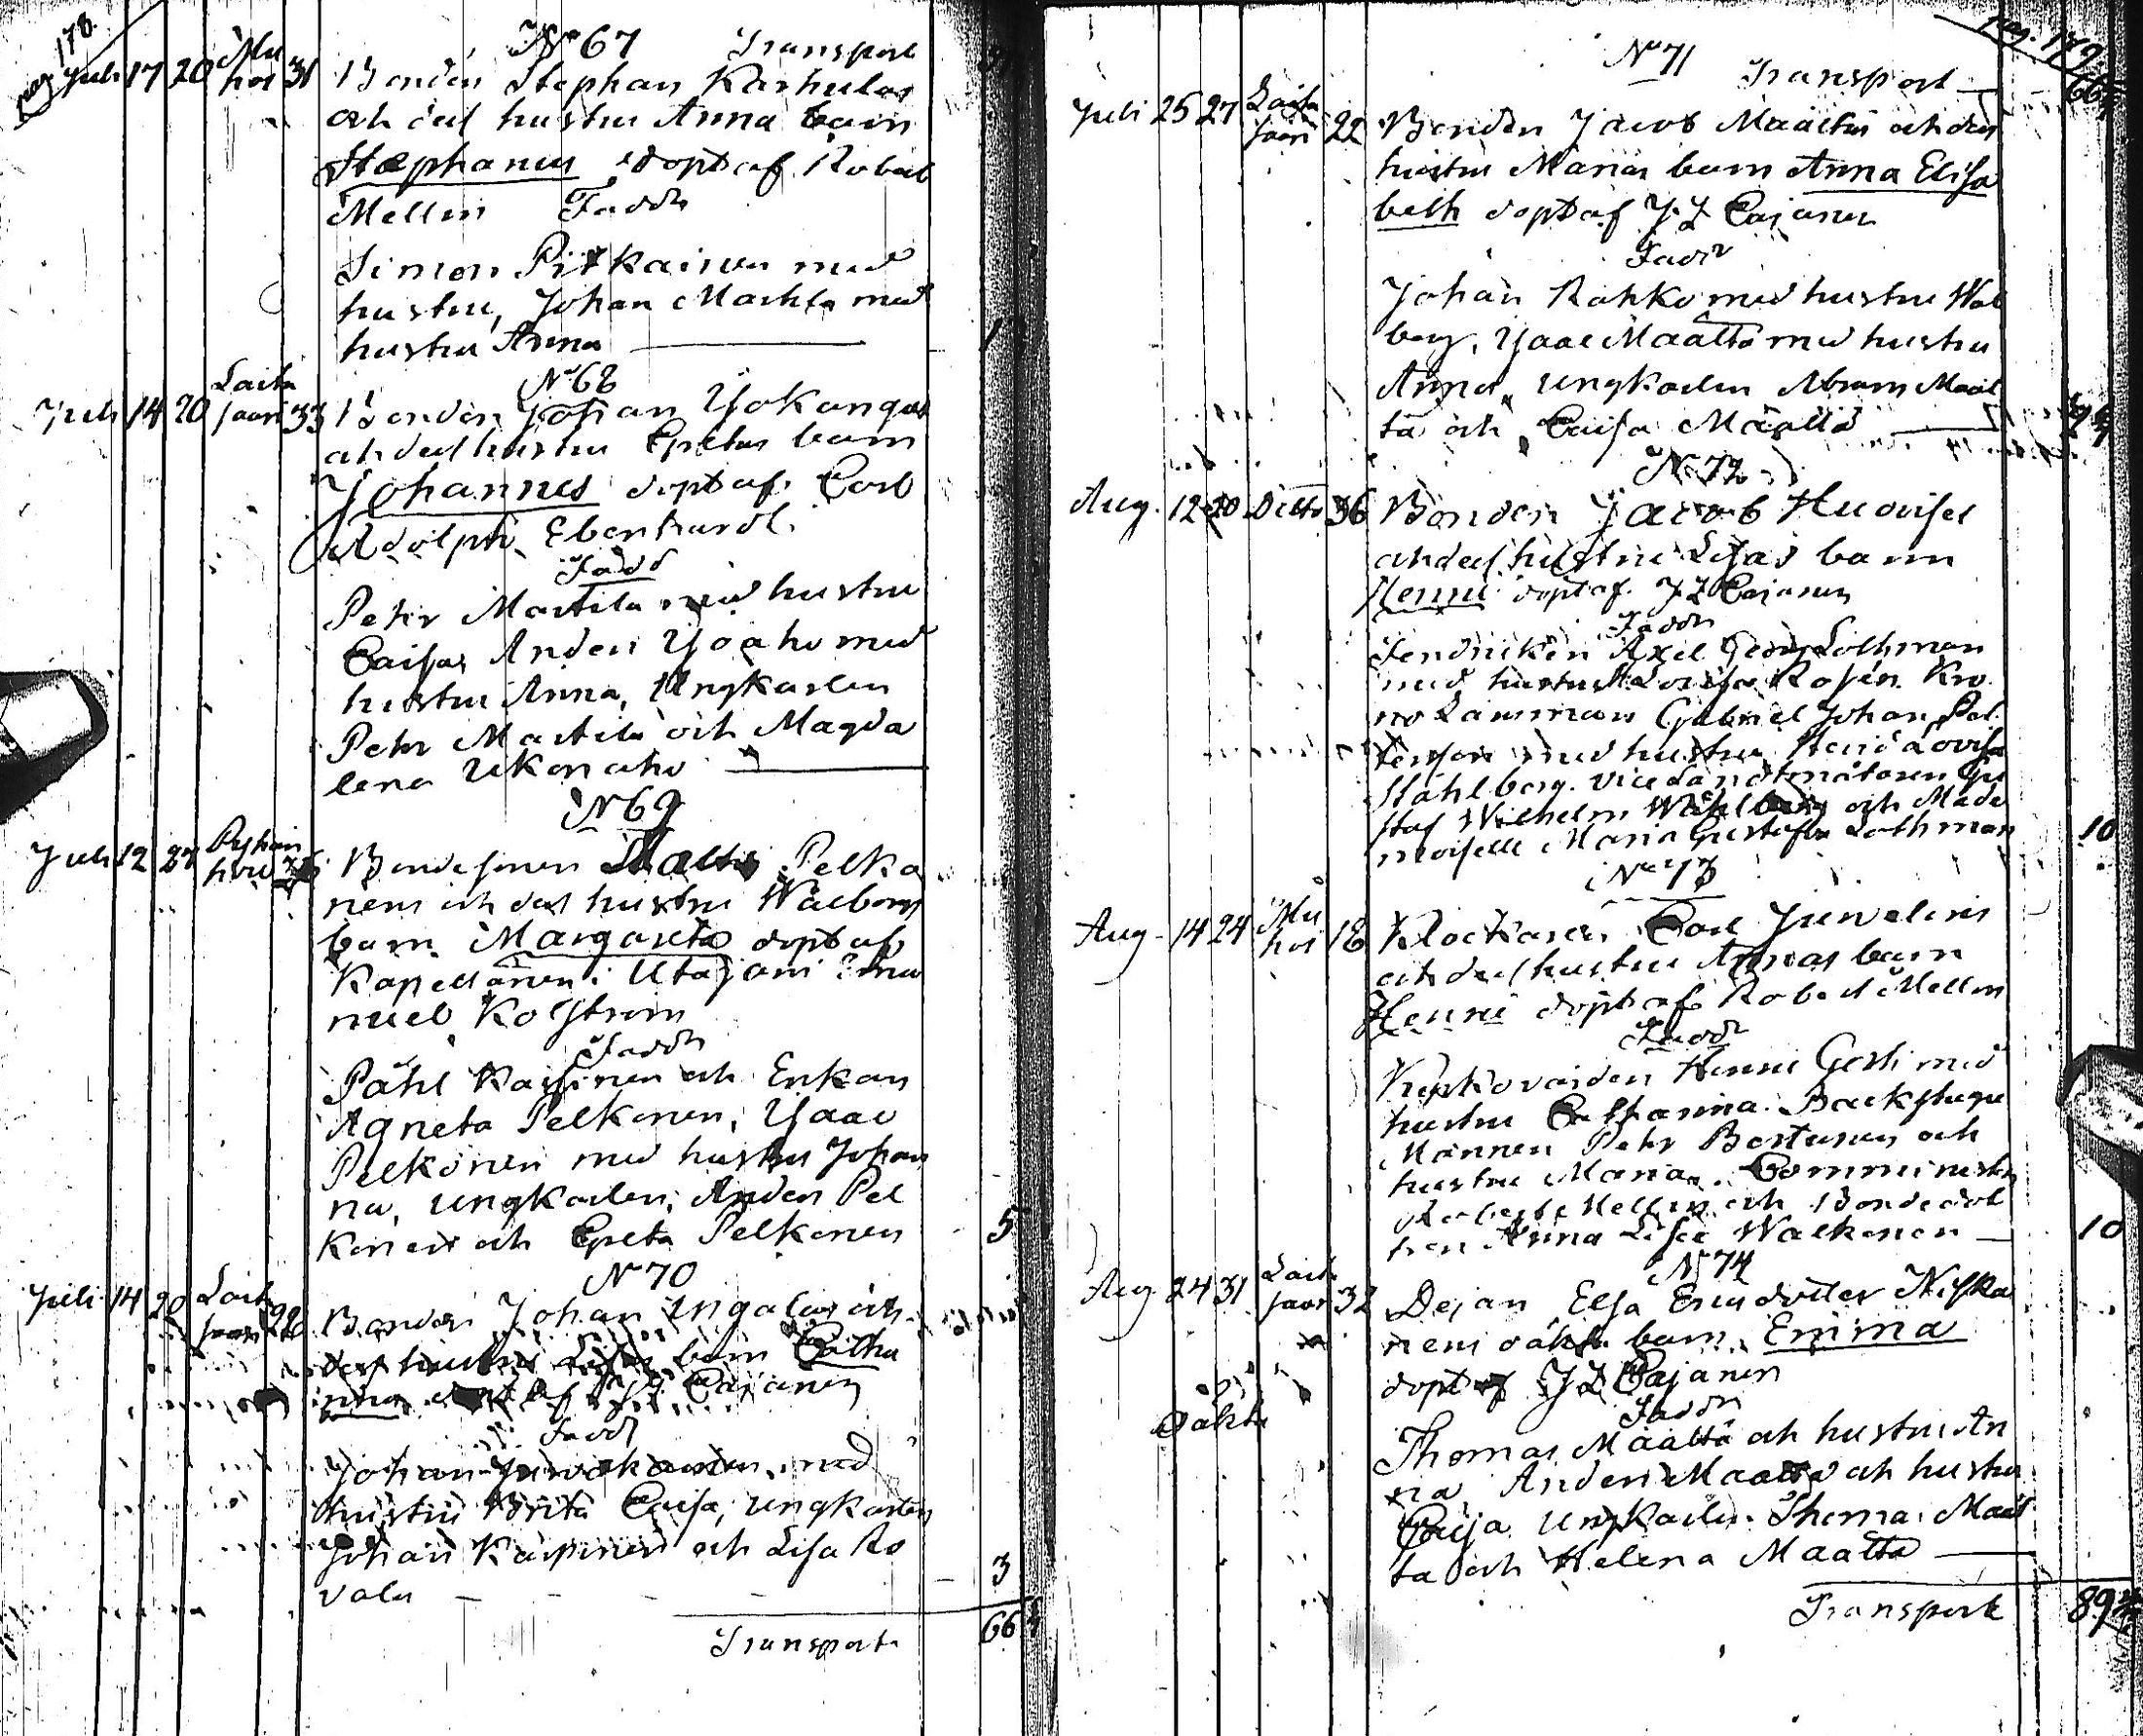 pag 178.
No 67 Transport
Juli 17 20 Mu
hos 31 Bonden Stephan Karhulas
och dess hustru Anna barn
Stephanus döpt af Robert
Mellin Fadd
Simon Pitkainen med
hustru, Johan Markla med
hustru Anna
No 68
Juli 14 20 Laita
saari 33 Bonden Johan Yokangas
och dess hustru Gretas barn
Johannes döpt af Carl
Adolph Eberhardt.
Fadd
Petr Martila med hustru
Caisa, Anders Yoaho med
hustru Anna, Ungkarlen
Petr Martila och Magda
lena Ukonaho
No 69
Juli 12 27 Pyhän
Bondesonen Pelko
nens och dess hustru Walborgs
barn Margareta döpt af
Kapellanen i Utajärvi Ema
nuel Kolstrom
Fadd
Påhl Kaisinen och Enkan
Agneta Pelkonen, Isaac
Pelkonen med hustru Johan
na, Ungkarlen Anders Pel
konen och Greta Pelkonen 5
No 70
Juli 14 20 Laita
saari 22 Bonden Johan Ingalas och
dess hustru barn Catha
rina af Cajanus
Fadd
Johan med
hustru Brita Caisa, Ungkarlen
Johan Karpinen och Lisa Ro
vala 3
Transport 66
pag. 179
No 71
Transport 66
Juli 25 27 Laita
saari 22 Bonden Jacob Määttäs och dess
hustru Marias barn Anna Elisa
beth döpt af J Z Cajanus
Fadd
Johan Rahko med hustru Wal
borg, Isaac Määttä med hustru
Anna, Ungkarlen Abram Määt
ta och Caisa Määttä
No 72
Aug. 12 20 Ditto 36 Bonden Jacob Huovises
och dess hustru Lisas barn
Henric döpt af J Z Cajanus
Fadd
Fendricken Axel Georg Lothman
med hustru Lovisa Rosén. Kro
no Länsman Gabriel Johan Pet
terson med hustru Hedvig Lovisa
Stahlberg. Vice Landtmätaren Gu
staf Wilhelm Wahlberg och Made
moiselle Maria Gustafva Lothman 10
No 73
Aug. 14 24 Mu
hos 18 Klockaren Carl Juvelius
och dess hustru Annas barn
Henric döpt af Robert Mellin
Fadd
Kyrkovärden Henric Gesti med
hustru Catharina. Backstugu
Mannen Petr Bertunen och
hustru Maria. Comministern
Robert Mellin och Bondedot
tren Anna Lisa Walkonen 10
No 74
Aug. 24 31 Laita
saari 32 Pejan Elsa Ersdotter Niska
nens oäkta barn Emma
döpt af J Z Cajanus
Oäkta Fadd
Thomas Määttä och hustru An
na, Anders Määttä och hustru
Caisa Ungkarlen Thomas Määt
ta och Helena Määttä
Transport 89